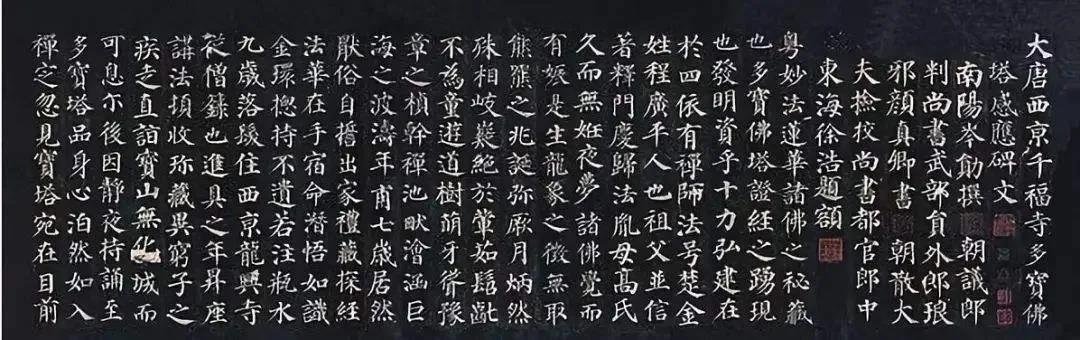 大唐西京千福寺多寶佛
塔感應碑文
南陽岑勛撰 朝議郎
判尚書武部員外郎琅
邪顏真卿書 朝散大
夫撿挍尚書都官郎中
東海徐浩題額
粵妙法蓮華諸佛之祕藏
也多寶佛塔證經之踴現
也發明資乎十力弘建在
於四依有禪師法号楚金
姓程廣平人也祖父並信
著釋門慶歸法胤母高氏
久而無妊夜夢諸佛覺而
有娠是生龍象之徵無取
熊羆之兆誕弥厥月炳然
殊相岐嶷絕於葷茹髫齔
不為童遊道樹萌牙聳豫
章之楨幹禪池畎澮涵巨
海之波濤年甫七歲居然
猒俗自誓出家禮藏探經
法華在手宿命潛悟如識
金環捴持不遺若注瓶水
九歲落髮住西京龍興寺
從僧籙也進具之年昇座
講法頓收弥藏異窮子之
疾走直詣寶山無化城而
可息尒後因靜夜持誦至
多寶塔品身心泊然如入
禪定忽見寶塔宛在目前